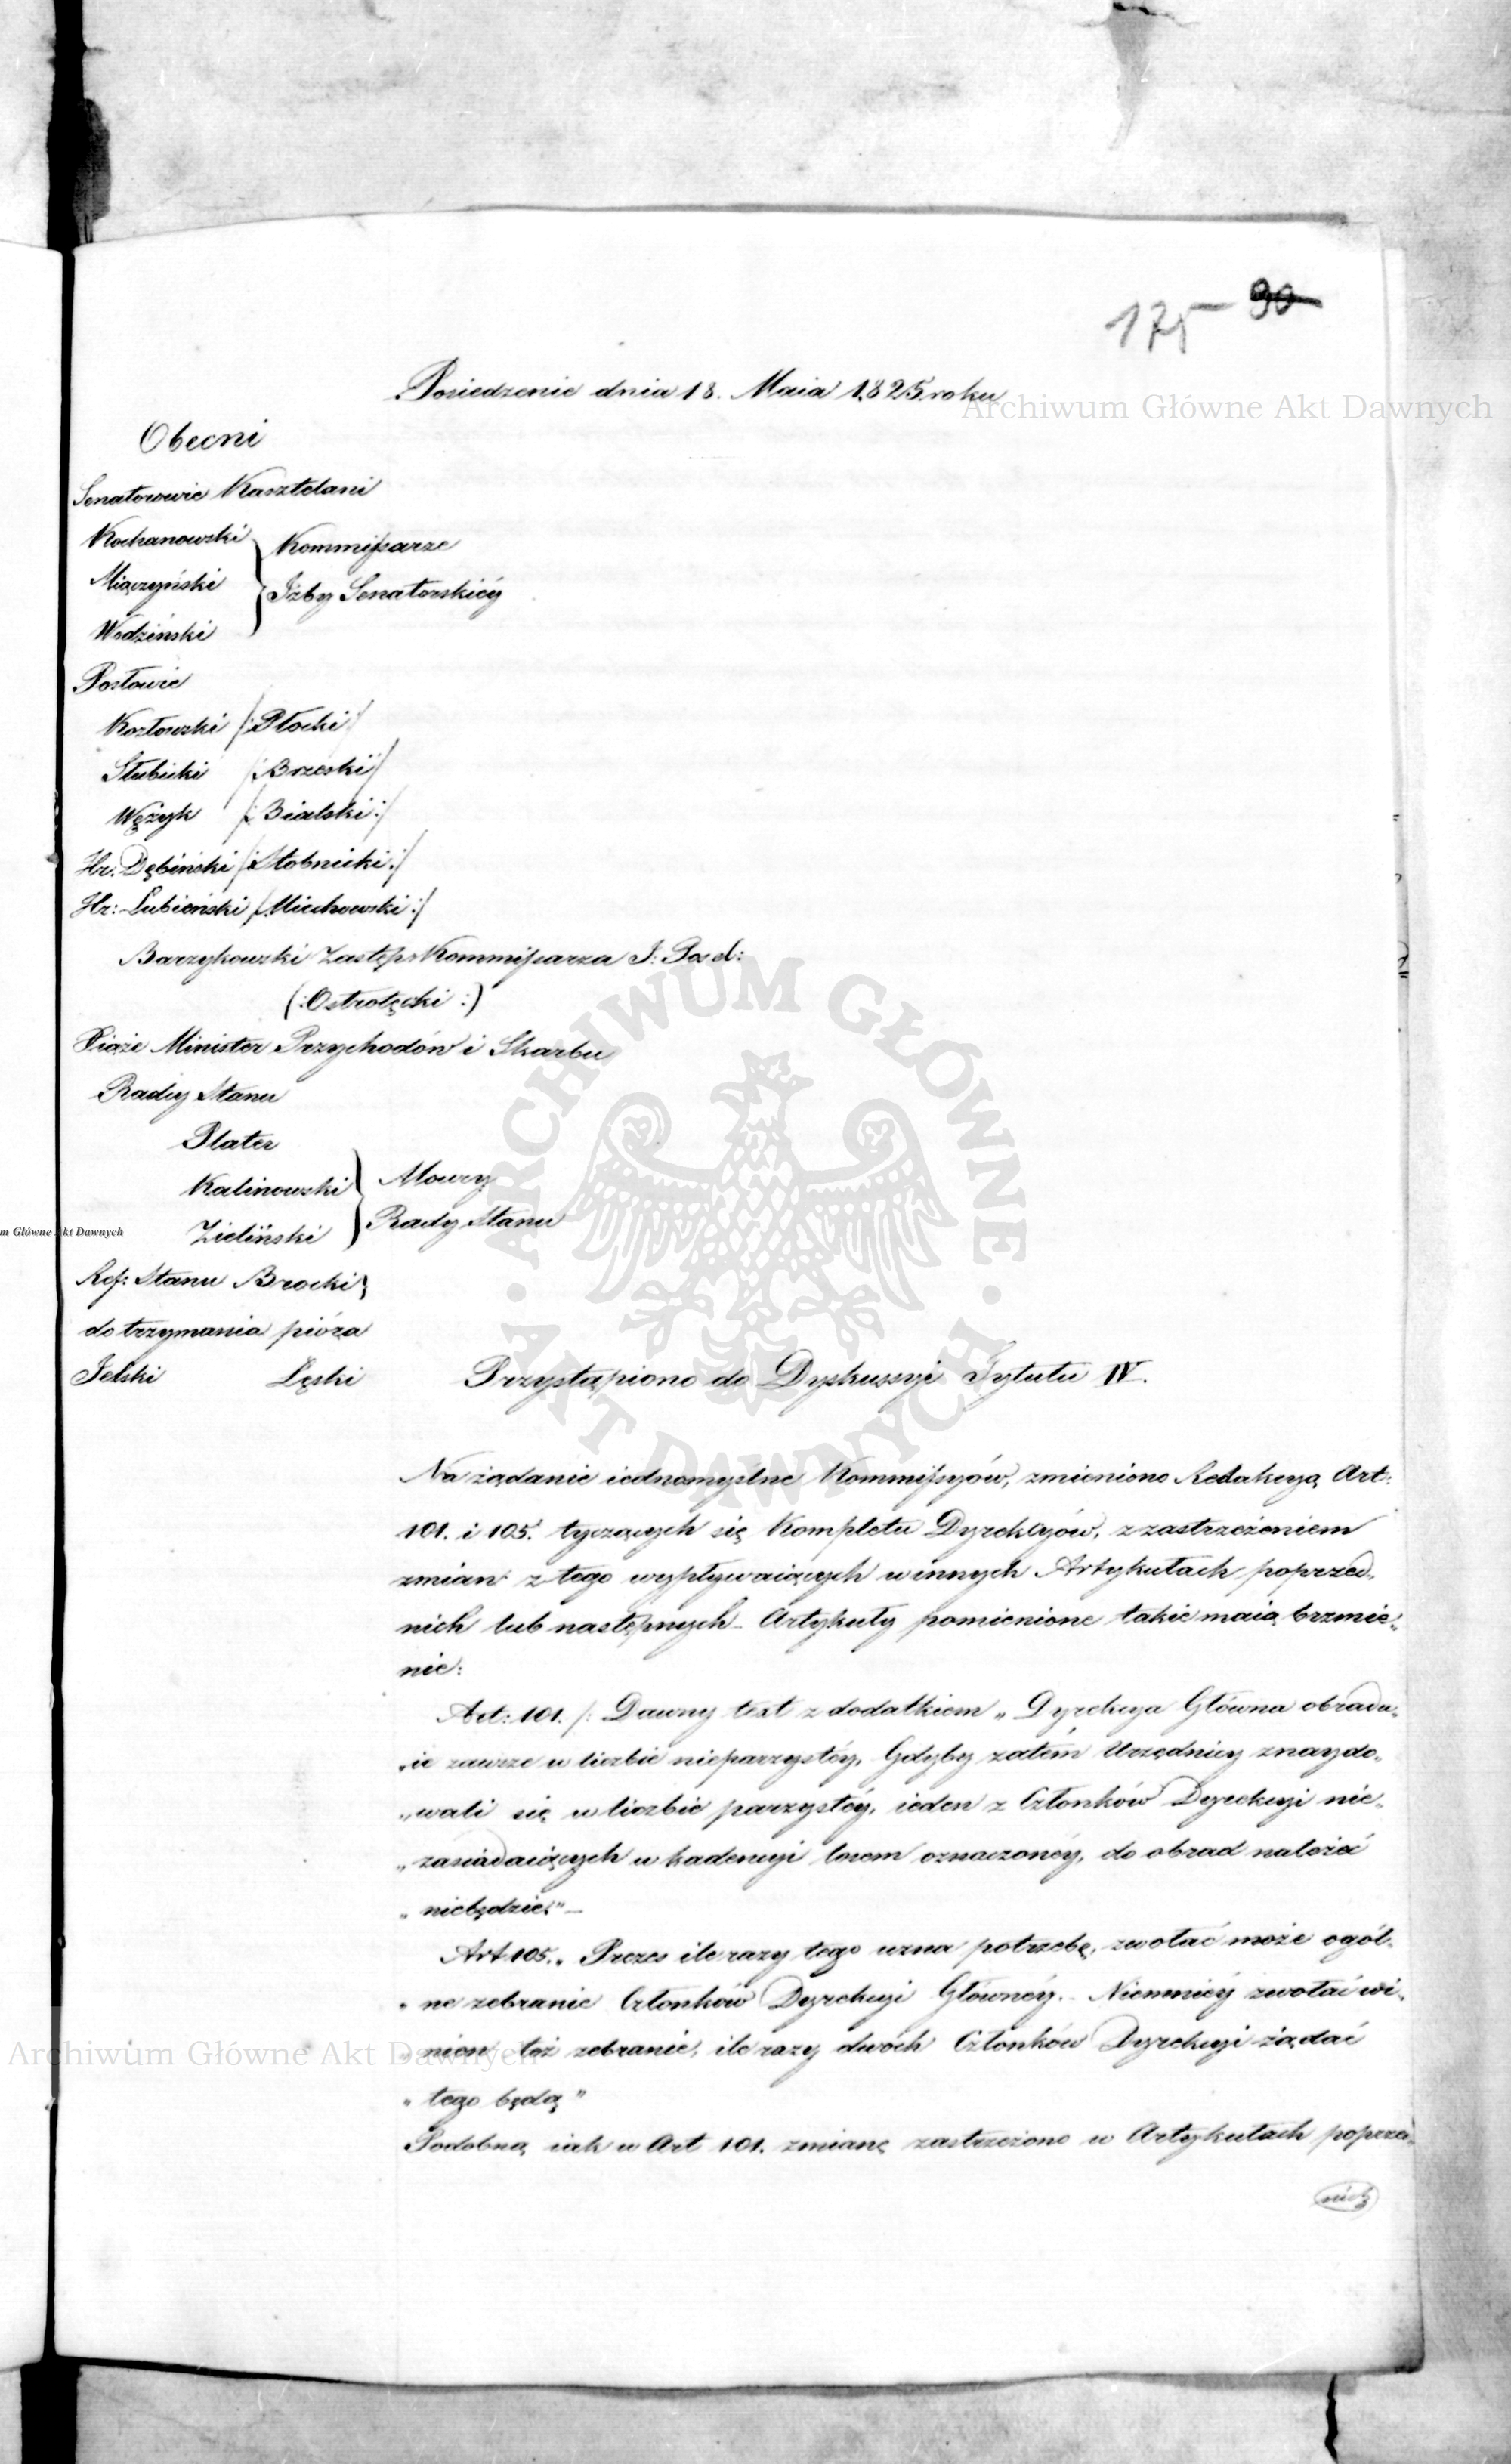 175 90
Posiedzenie dnia 18. Maia 1825. roku
Archiwum Główne Akt Dawnych
Obecni
Senatorowie Kasztelani
Kochanowski
Miączyński
Wodziński
Kommissarze
Izby Senatorskiéy
Posłowie
Kozłowski /:Płocki/
Słubicki /:Brzeski/
Wężyk /:Bialski:/
Hr. Dębiński /:Stobnicki:/
Hr: Łubieński /:Miechowski:/
Barzykowski Zastęp: Kommissarza I: Posel:
(:Ostrołęcki:)
Xiąże Minister Przychodów i Skarbu
Radcy Stanu
Plater
Kalinowski
Zieliński
Mowcy
Rady Stanu
m Główne Akt Dawnych
Ref: Stanu Brocki
do trzymania pióra
Jelski Łęski
Przystąpiono do Dyskussyi Tytułu IV.
ARCHIWUM GŁÓWNE · AKT DAWNYCH ·
Na żądanie iednomyślne Kommissyów, zmieniono Redakcyą Art:
101. i 105. tyczących się Kompletu Dyrekcyów, z zastrzeżeniem
zmian z tego wypływaiących w innych Artykułach poprzed„
nich lub następnych – Artykuły pomienione takie maią brzmie„
nie:
Art: 101. /: Dawny text z dodatkiem „ Dyrekcya Główna obradu„
„ie zawsze w liczbie nieparzystéy, Gdyby zatém Urzędnicy znaydo„
„wali się w liczbie parzystéy, ieden z Członków Dyrekcyi nie„
„zasiadaiących w kadencyi losem oznaczonéy, do obrad należeć
„ niebędzie" –
Art 105. „ Prezes ile razy tego uzna potrzebę, zwołać może ogól„
„ ne zebranie Członków Dyrekcyi Głównéy. – Niemniéy zwołać wi„
„ nien też zebranie, ile razy dwóch Członków Dyrekcyi żądać
Archiwum Główne Akt Dawnych
„ tego będą "
Podobną iak w Art 101. zmianę zastrzeżono w Artykułach poprzed„
nich